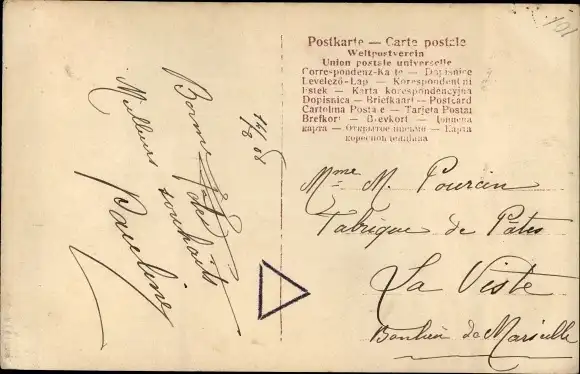 Postkarte — Carte postale
Weltpostverein
Union postale universelle
Correspondenz-Ka te — Dopisnice
Levelező-Lap — Korespondentní
lístek — Karta korespondencyjna
Dopisnica — Briefkaart — Postcard
Cartolina Posta e — Tarjeta Postal
Brefkort — Brevkort —
карта — Открытое письмо — Карта
101
14/8 08
Bonne fête
des souhaits
Meilleurs
Pauline
Mme M. Pourcin
Fabrique de Pâtes
La Viste
Banlieu de Marseille